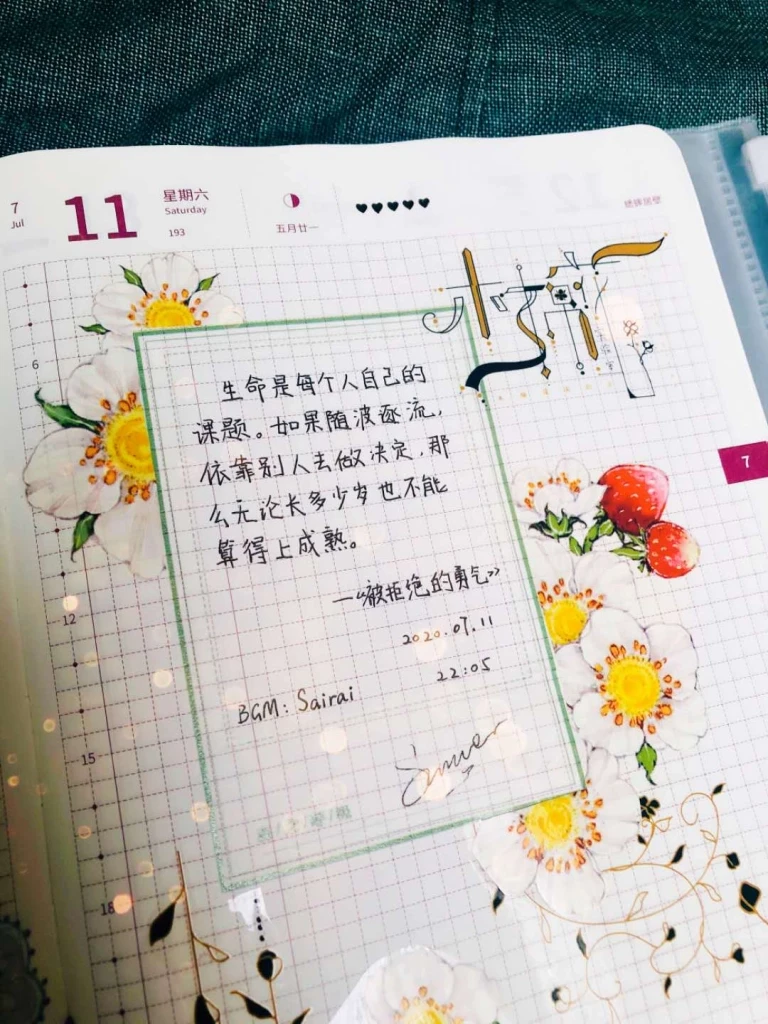 7
Jul
11
星期六
Saturday
193
五月廿一
6
生命是每个人自己的
课题。如果随波逐流,
依靠别人去做决定,那
么无论长多少岁也不能
算得上成熟。
—《被拒绝的勇气》
2020.07.11
22:05
BGM: Sairai
7
12
15
18